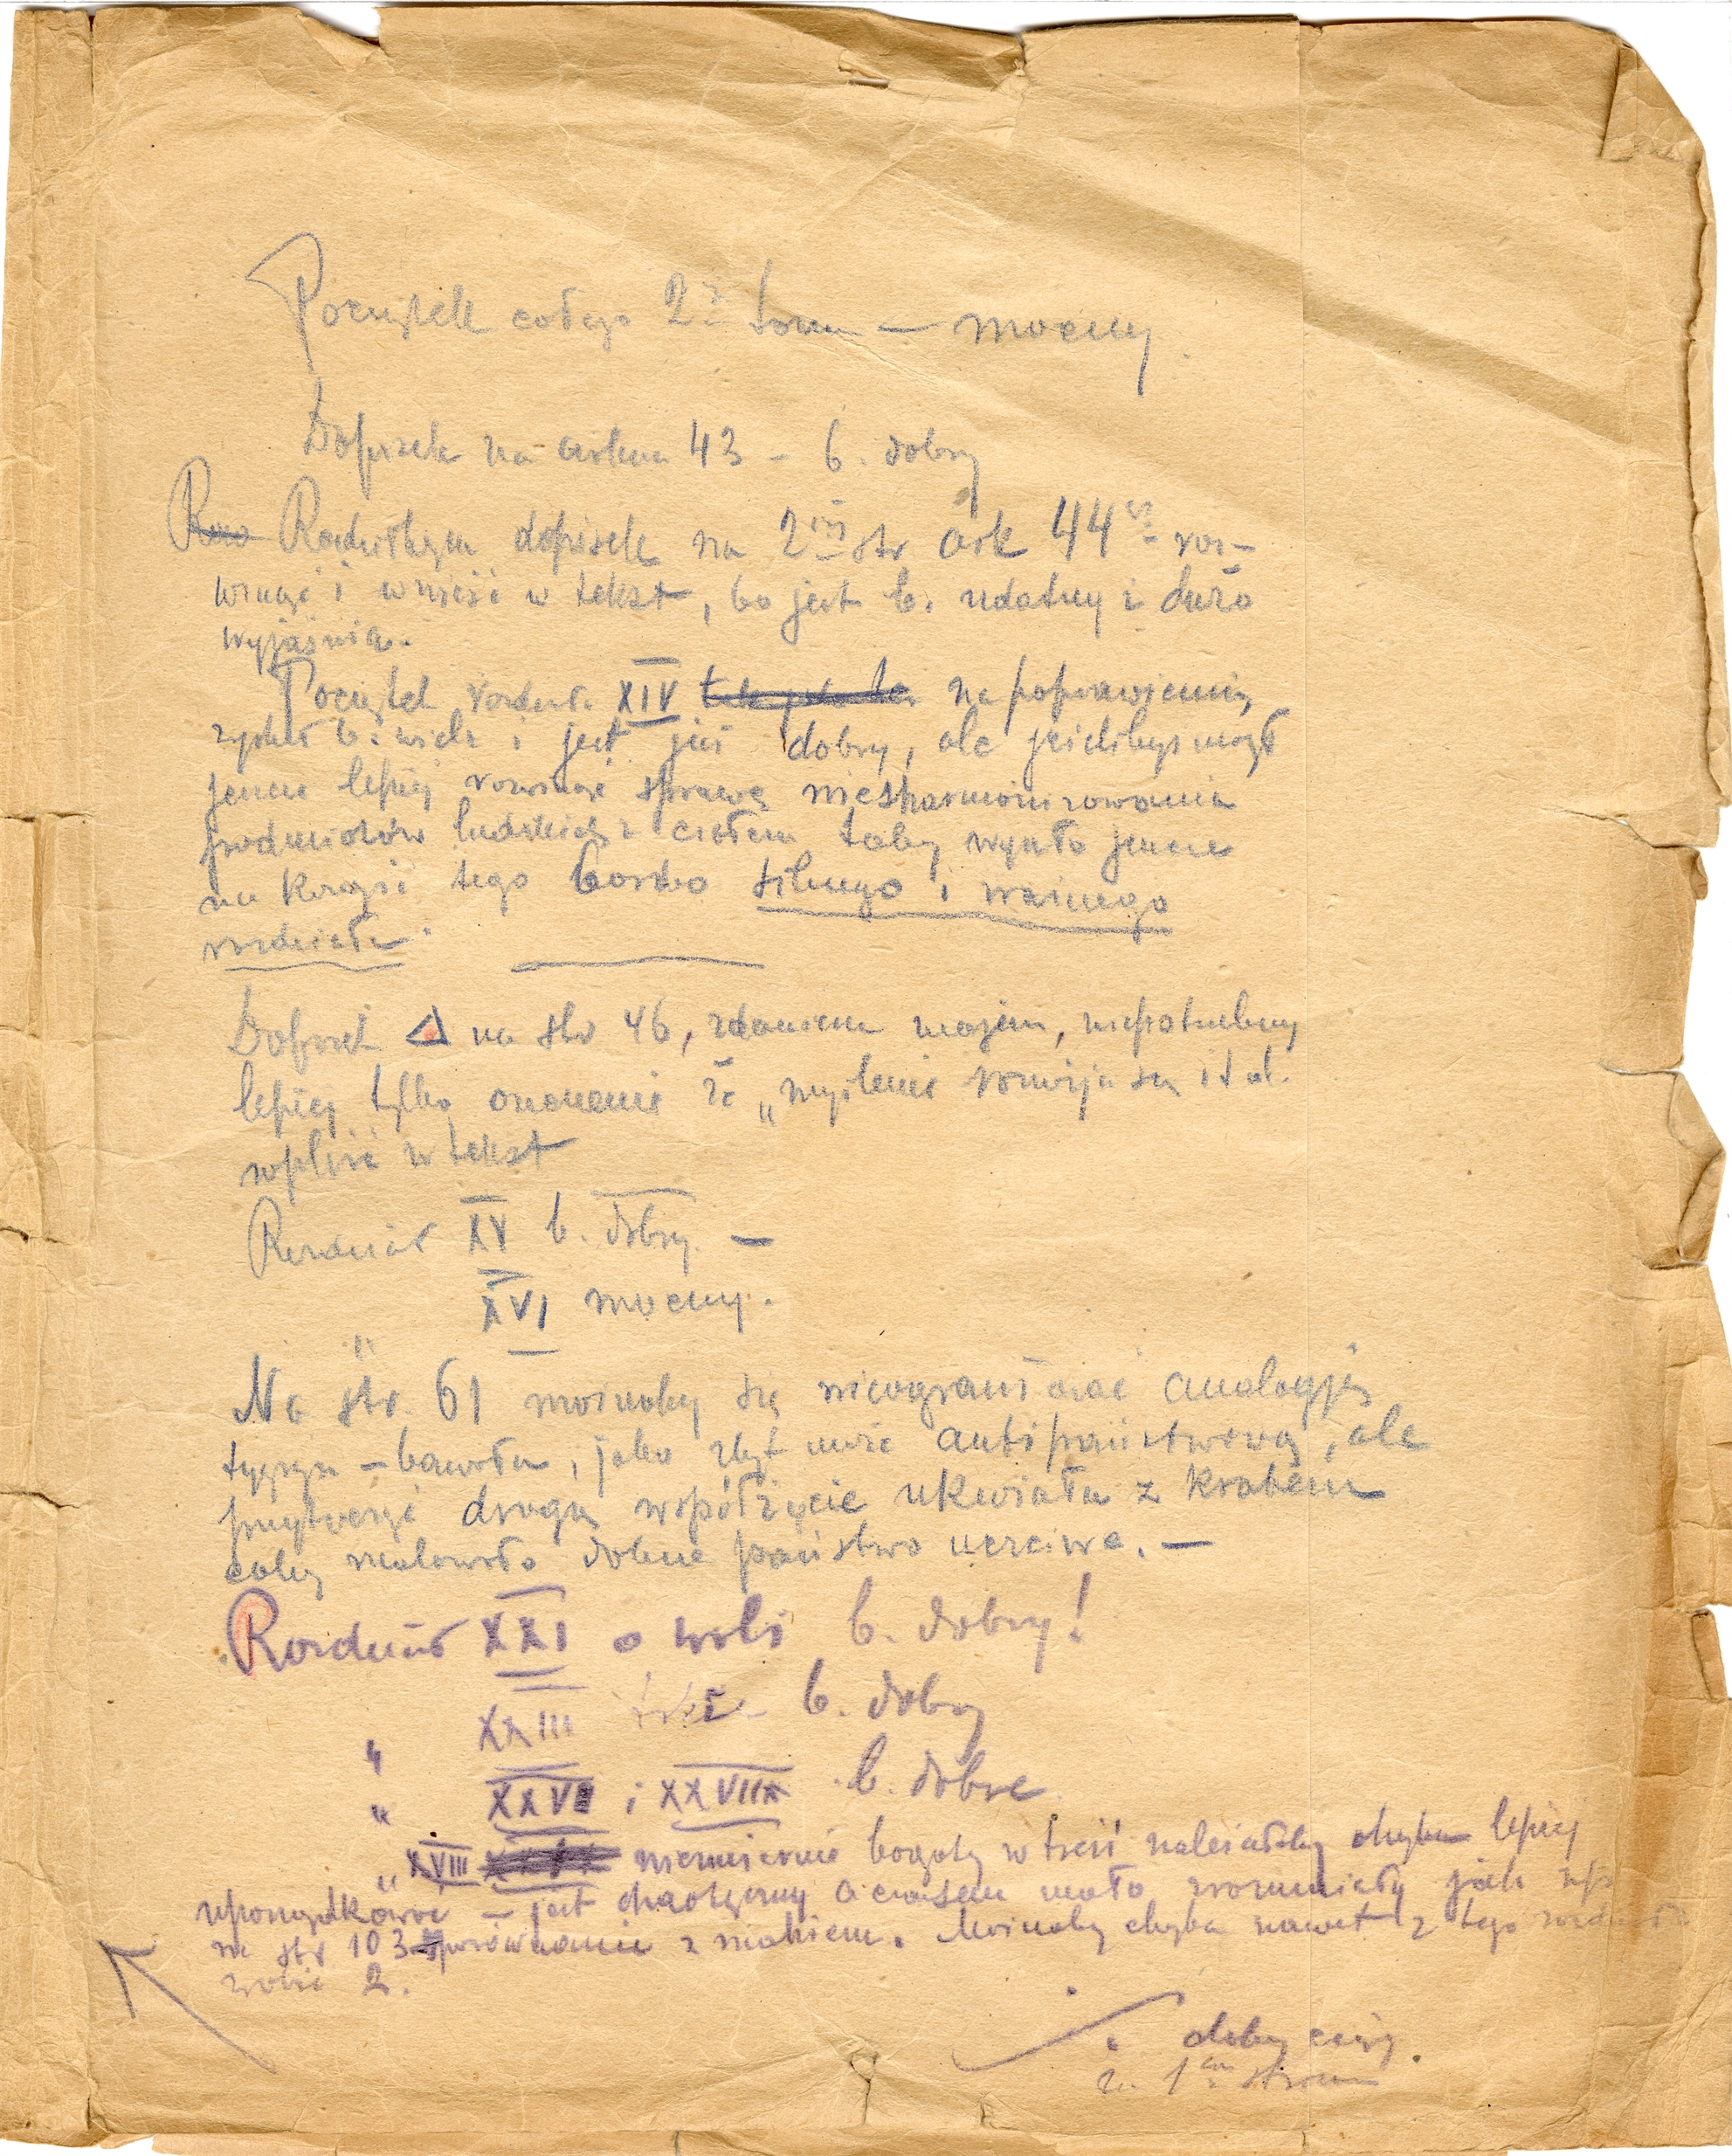 Początek całego 2go tomu — mocny.
Dopisek na arkusz 43 – b. dobry
Radziłbym dopisek na 2iej str ark 44go roz-
winąć i wnieść w tekst, bo jest b. udatny i dużo
wyjaśnia.
Początek rozdziału XIV na poprawieniu
zyskał b. wiele i jest już dobry, ale jeślibyś mógł
jeszcze lepiej rozwinąć sprawę niezharmonizowania
podmiotów ludzkich z ciałem toby wyszło jeszcze
na korzyść tego bardzo silnego i ważnego
rozdziału.
Dopisek Δ na str 46, zdaniem mojem, niepotrzebny
lepiej tylko że „myślenie rozwija się itd.
wpleść w tekst
Rozdział XV b. dobry. —
" XVI mocny.
Na str. 61 możnaby się nieograniczać analogją
tygrysa – bawołu, jako zbyt może antipaństwową, ale
przytoczyć drugą współżycie ukwiału z krabem
coby malowało dobrze państwo uczciwe. —
Rozdział XXI o woli b. dobry!
" XXIII też – b. dobry
" XXVI i XXVIII b. dobre
" XVIII niezmiernie bogaty w treść należałoby chyba lepiej
uporządkować – jest chaotyczny a czasem mało zrozumiały jak np
na str 103 porównanie z makiem. Możnaby chyba nawet z tego rozdziału
zrobić 2.